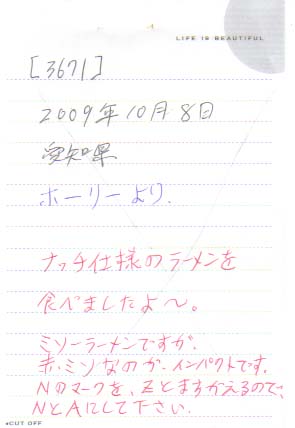 LIFE IS BEAUTIFUL
[3671]
2009年10月8日
愛知県
ホーリーより.
ナッチ仕様のラーメンを
食べましたよ〜。
ミソーラーメンですが、
赤ミソなのが、インパクトです。
Nのマークを、Zとまちがえるので、
NとAにして下さい.
CUT OFF